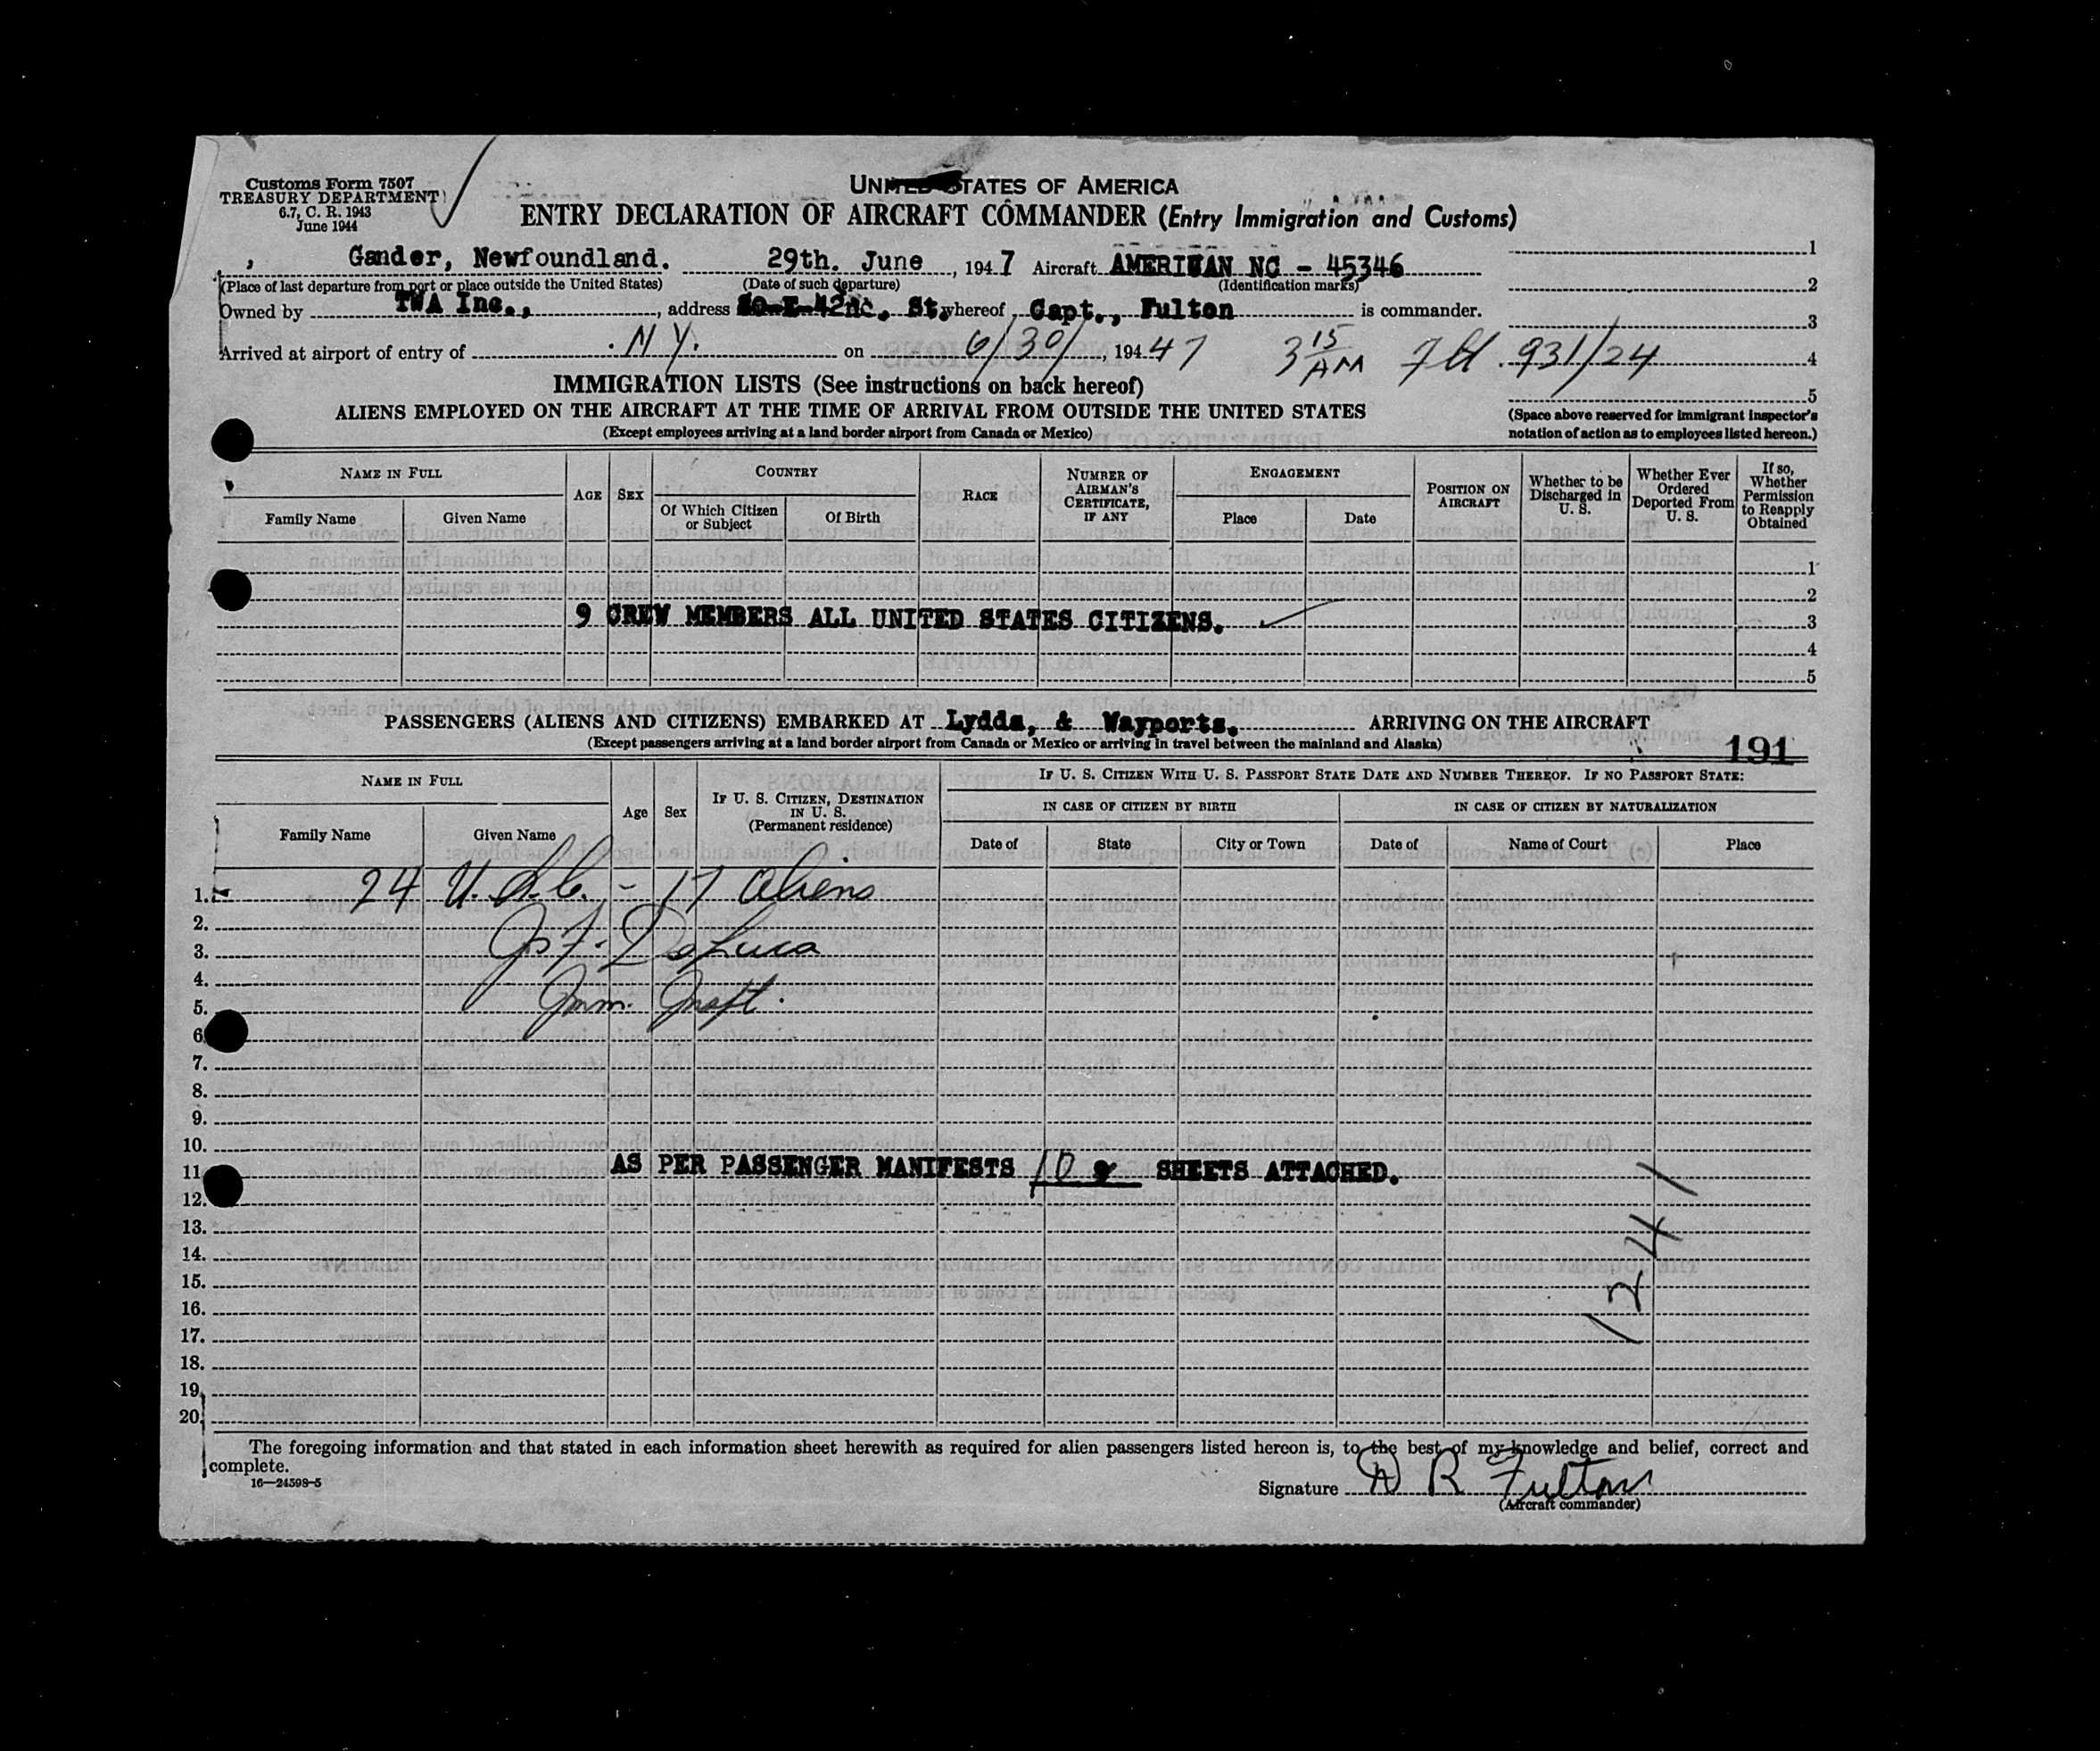 Customs Form 7507
TREASURY DEPARTMENT
6.7, C. R. 1943
June 1944
UNITED STATES OF AMERICA
ENTRY DECLARATION OF AIRCRAFT COMMANDER (Entry Immigration and Customs)
Gander, Newfoundland. 29th. June, 1947 Aircraft AMERICAN NC - 45346
(Place of last departure from port or place outside the United States) (Date of such departure) (Identification marks)
Owned by TWA Inc., address St. whereof Capt., Fulton is commander.
Arrived at airport of entry of N Y. on 6/30/, 194 47 3 15 AM 931/24
1
2
3
4
5
(Space above reserved for immigrant inspector's
notation of action as to employees listed hereon.)
IMMIGRATION LISTS (See instructions on back hereof)
ALIENS EMPLOYED ON THE AIRCRAFT AT THE TIME OF ARRIVAL FROM OUTSIDE THE UNITED STATES
(Except employees arriving at a land border airport from Canada or Mexico)
NAME IN FULL
Family Name
Given Name
AGE
SEX
COUNTRY
Of Which Citizen or Subject
Of Birth
RACE
NUMBER OF AIRMAN'S CERTIFICATE, IF ANY
ENGAGEMENT
Place
Date
POSITION ON AIRCRAFT
Whether to be Discharged in U. S.
Whether Ever Ordered Deported From U. S.
If so, Whether Permission to Reapply Obtained
1
2
9 CREW MEMBERS ALL UNITED STATES CITIZENS. 3
4
5
PASSENGERS (ALIENS AND CITIZENS) EMBARKED AT Lydda, & Wayports. ARRIVING ON THE AIRCRAFT
(Except passengers arriving at a land border airport from Canada or Mexico or arriving in travel between the mainland and Alaska)
191
NAME IN FULL
Family Name
Given Name
Age
Sex
IF U. S. CITIZEN, DESTINATION IN U. S.
(Permanent residence)
IF U. S. CITIZEN WITH U. S. PASSPORT STATE DATE AND NUMBER THEREOF. IF NO PASSPORT STATE:
IN CASE OF CITIZEN BY BIRTH
Date of
State
City or Town
IN CASE OF CITIZEN BY NATURALIZATION
Date of
Name of Court
Place
1. 24 U.S.C. - 17 Aliens
2.
3. Jos F. DeLuca
4.
5. Imm. Inspt.
6.
7.
8.
9.
10.
11. AS PER PASSENGER MANIFESTS 10 SHEETS ATTACHED.
12.
13.
14.
15.
16.
17.
18.
19.
20.
1241
The foregoing information and that stated in each information sheet herewith as required for alien passengers listed hereon is, to the best of my knowledge and belief, correct and
complete.
16—24598-5
Signature D R Fulton
(Aircraft commander)